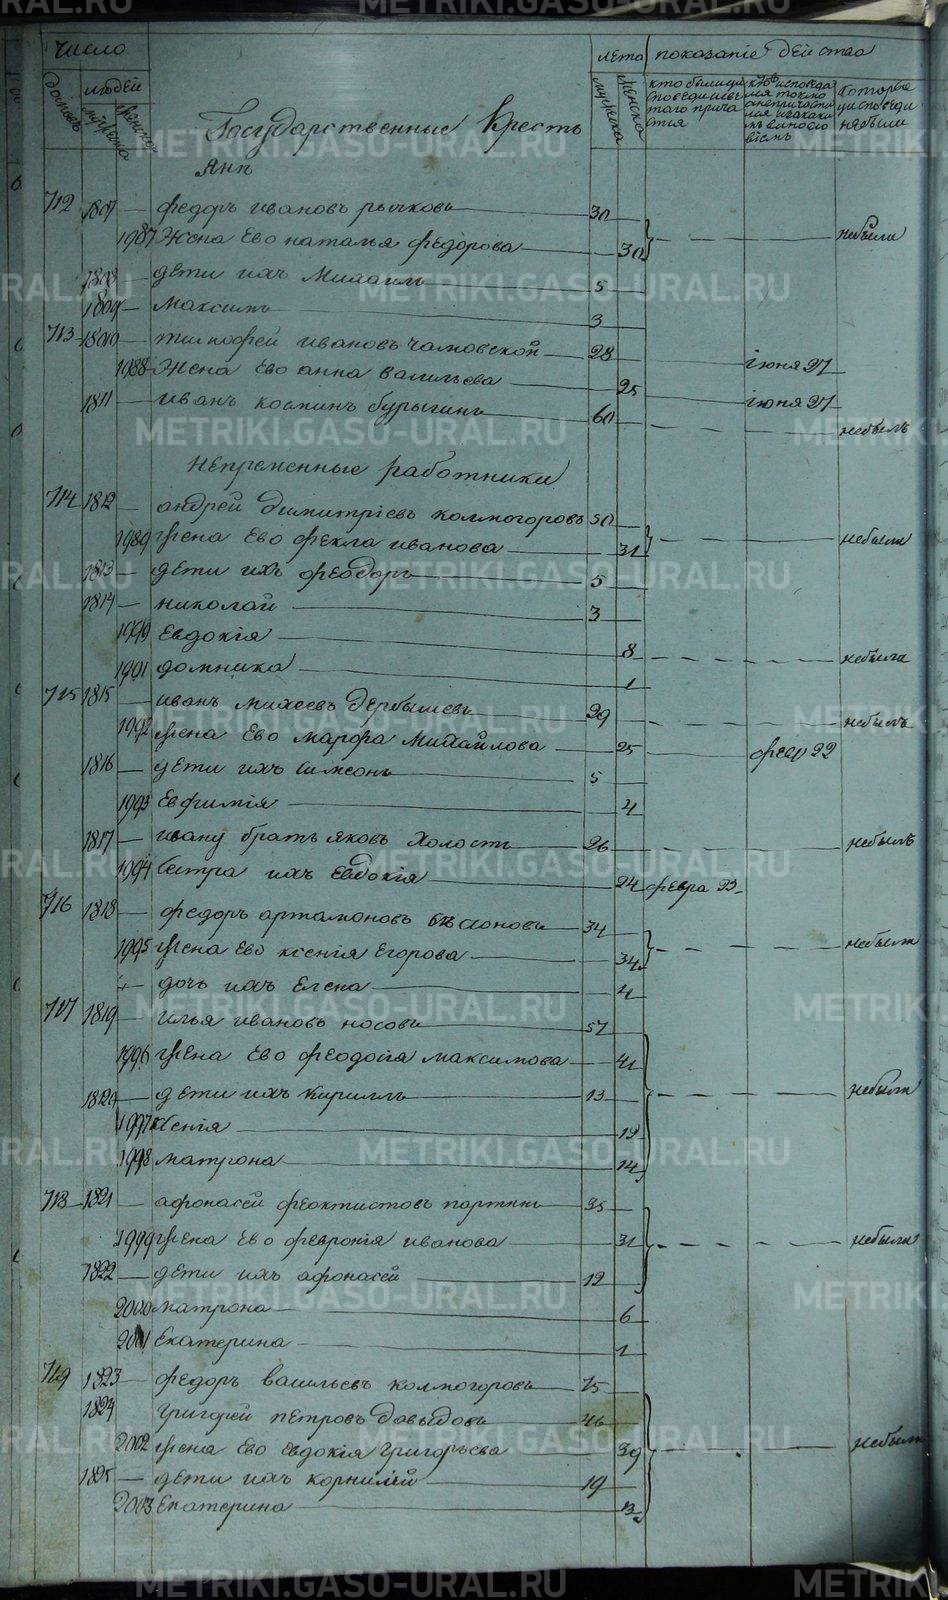 число
лета показанiе действа
домовъ
людей
мужеска
женска
мужеска
женска
кто были исповеди и святаго причастiя
которые у исповеди небыли
Государственные Кресть
янп
712 1807 — федоръ ивановъ рычковъ 30
1987 жена ево наталья федорова 30 небыли
1808 — дети ихъ михаилъ 5
1809 — максимъ 3
713 1810 — тимофей ивановъ чамовской 28 iюня 27
1988 жена ево анна васильева 25 iюня 27
1811 — иванъ козминъ бурыгинъ 60 небылъ
непременные работники
714 1812 — андрей димитрiевъ колмогоровъ 50
1989 жена ево фекла иванова 31 небыли
1813 — дети ихъ феодоръ 5
1814 — николай 3
1990 евдокiя 8 небыла
1991 домника 1
715 1815 — иванъ михеевъ дербышевъ 29 небылъ
1992 жена ево марфа михайлова 25 февр 22
1816 — дети ихъ симеонъ 5
1993 евфимiя 4
1817 — ивану братъ яковъ холостъ 26 небылъ
1994 сестра ихъ евдокiя 24 февра 23
716 1818 — федоръ артамоновъ 34
1995 жена ево ксенiя егорова 34 небыли
дочь ихъ елена 4
717 1819 — илья ивановъ носовъ 57
1996 жена ево феодосiя максимова 41
1820 — дети ихъ кириллъ 13 небыли
1997 ксенiя 19
1998 матрона 14
718 1821 — афонасей феоктистовъ партинъ 35
1999 жена ево февронiя иванова 31 небыли
1822 — дети ихъ афонасей 12
2000 матрона 6
2001 екатерина 1
719 1823 — федоръ васильевъ колмогоровъ 75
1824 григорей петровъ давыдовъ 46
2002 жена ево евдокiя григорьева 39 небыли
1825 — дети ихъ корнилей 19
2003 екатерина 13
METRIKI.GASO-URAL.RU